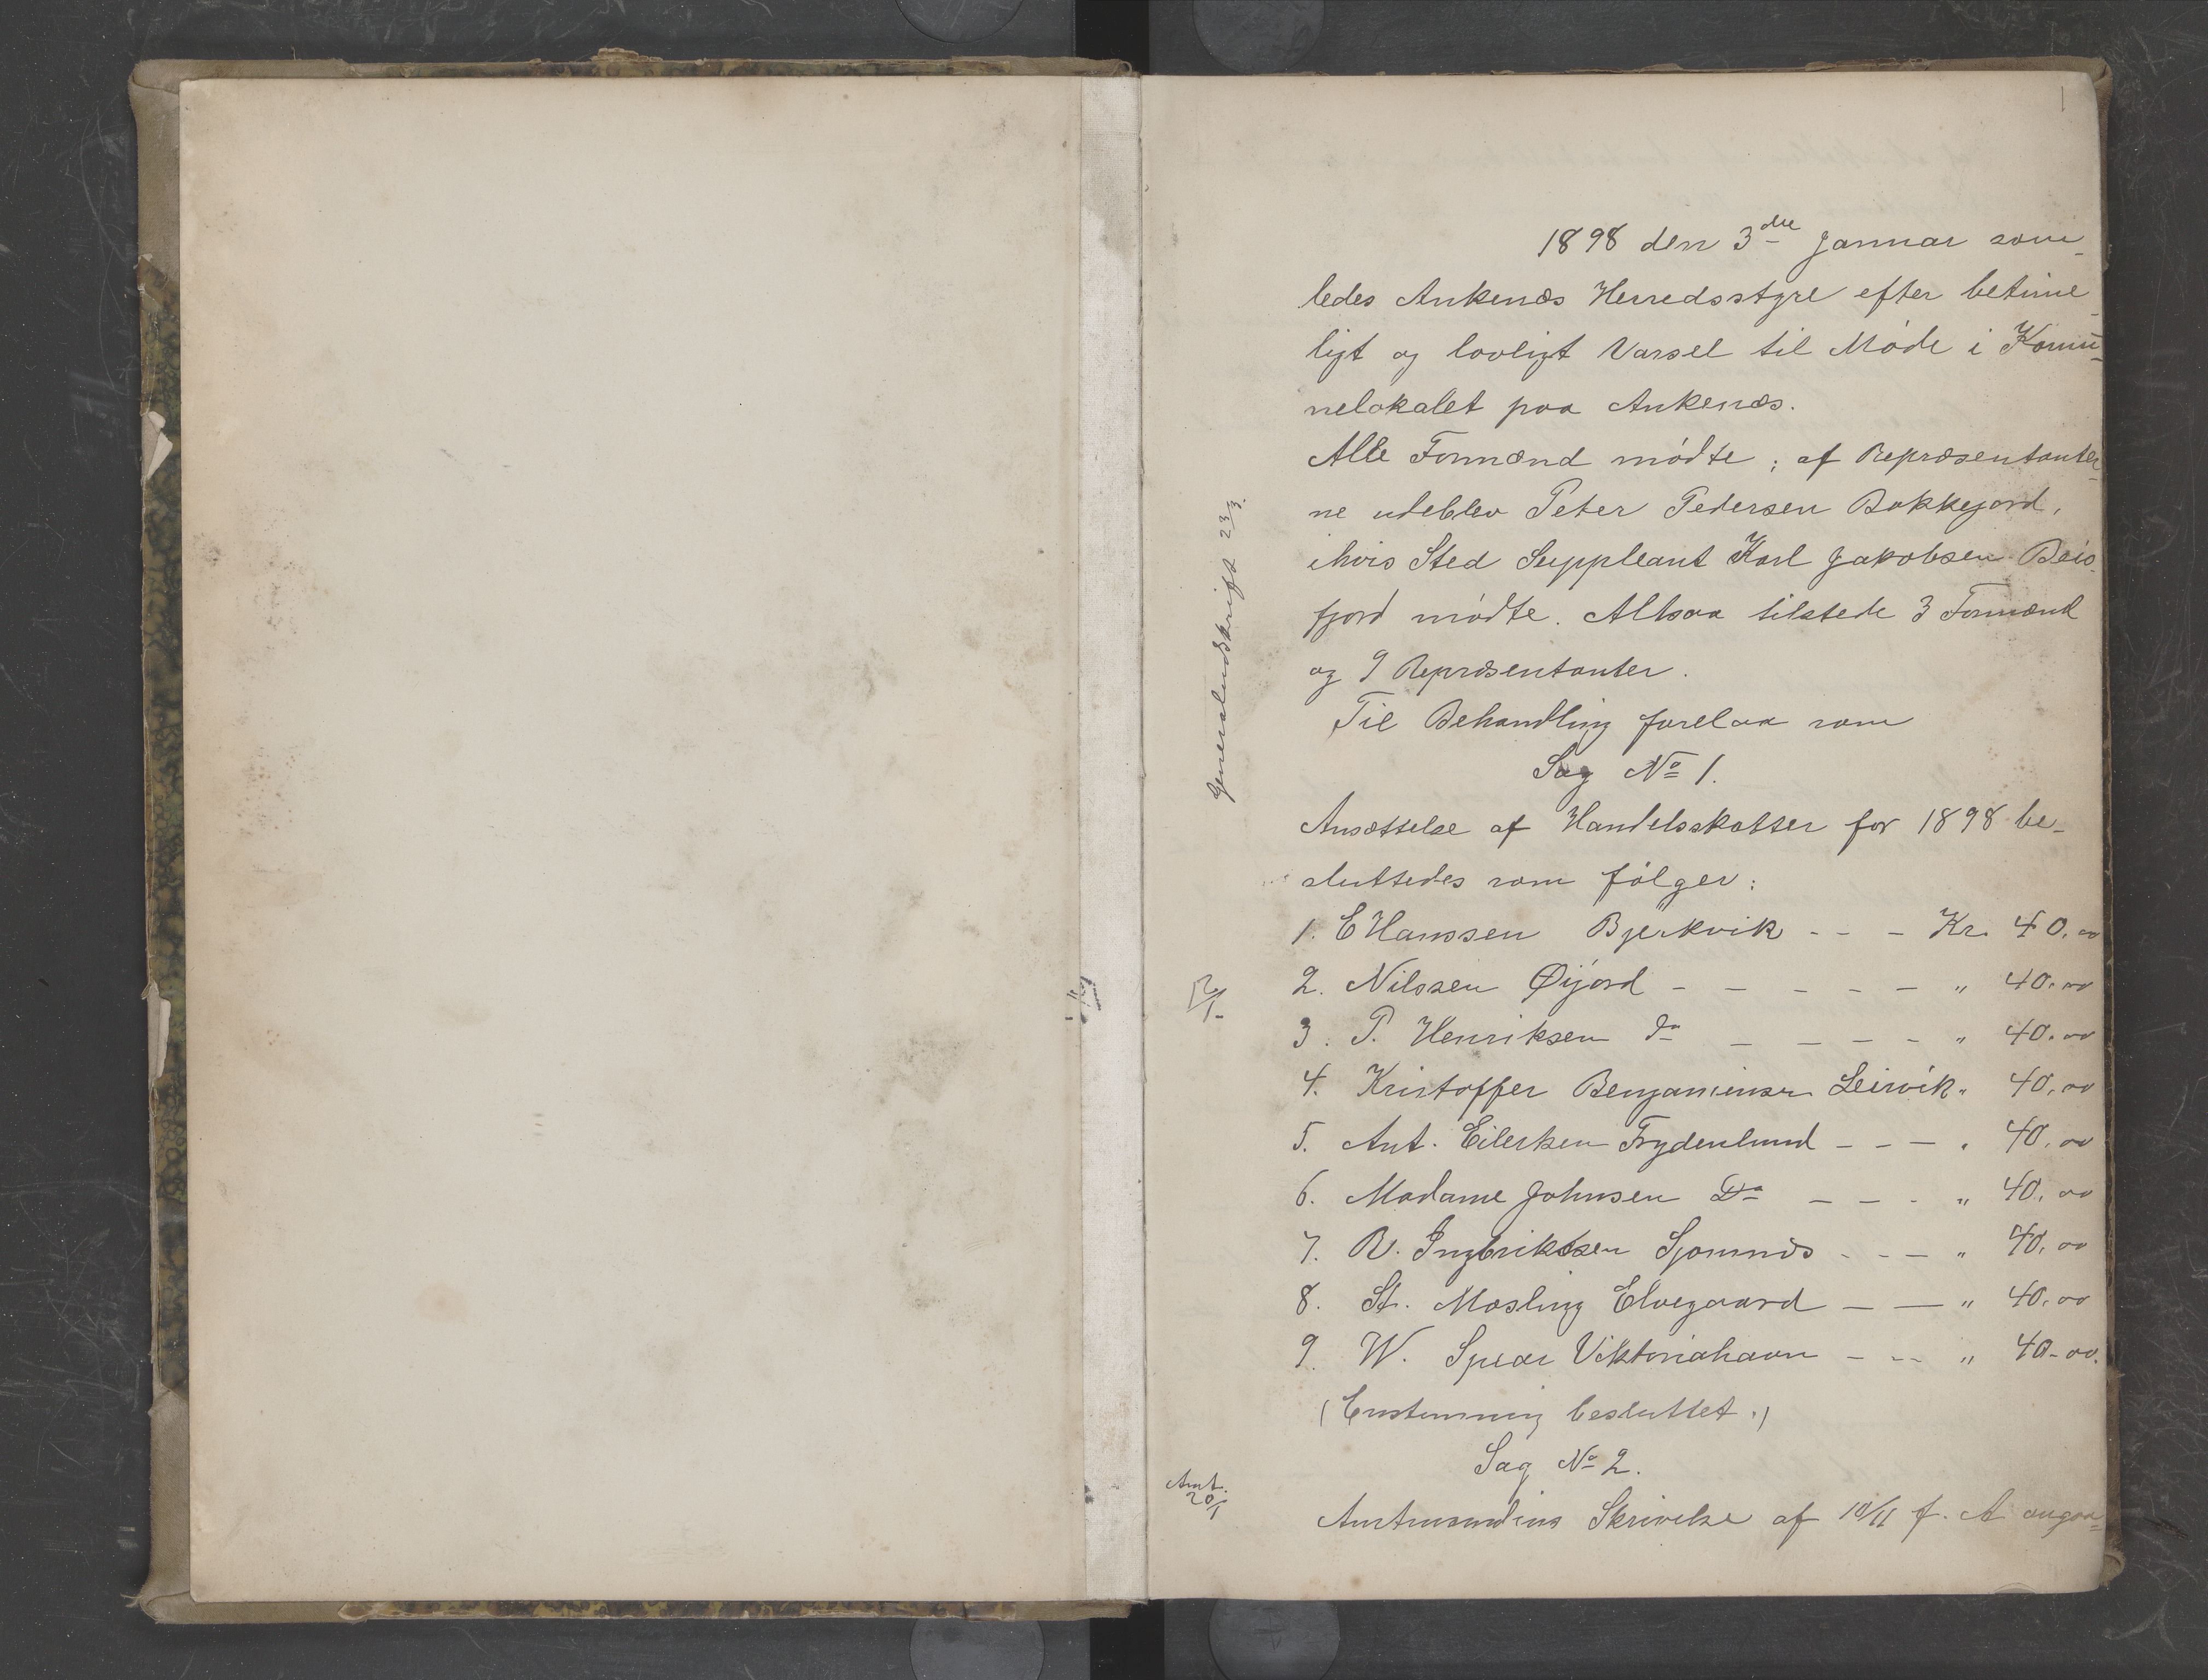 1
1898 den 3die Januar sam-
ledes Ankenæs Herredsstyre efter betime-
ligt og lovligt Varsel til Møde i Komu-
nelokalet paa Ankenæs.
Alle Formænd mødte; af Repræsentanter-
ne udeblev Peter Pedersen Bakkejord,
ihvis Sted Suppleant Karl Jakobsen Beis-
fjord mødte. Altsaa tilstede 3 Formænd
og 9 Repræsentanter.
Til Behandling forelaa som
Sag No 1.
Ansættelse af Handelsskatter for 1898 be-
sluttedes som følger:
1. E Hanssen Bjerkvik - - - Kr. 40.00
2. Nilssen Øijord - - - - - " 40.00
3. P. Henriksen do - - - - " 40.00
4. Kristoffer Benjaminsen Leirvik " 40.00
5. Ant. Eilertsen Frydenlund - - - " 40.00
6. Madame Johnsen Do - - - " 40.00
7. R. Ingbriktsen Sjomnæs - - - " 40.00
8. St. Mosling Elvegaard - - " 40.00
9. W. Spear Viktoriahavn - - - " 40.00.
(Enstemmig besluttet.)
Sag No 2.
Amtmandens Skrivelse af 10/11 f. A angaa-
Generaludskrift 23/3.
Amt.
20/1